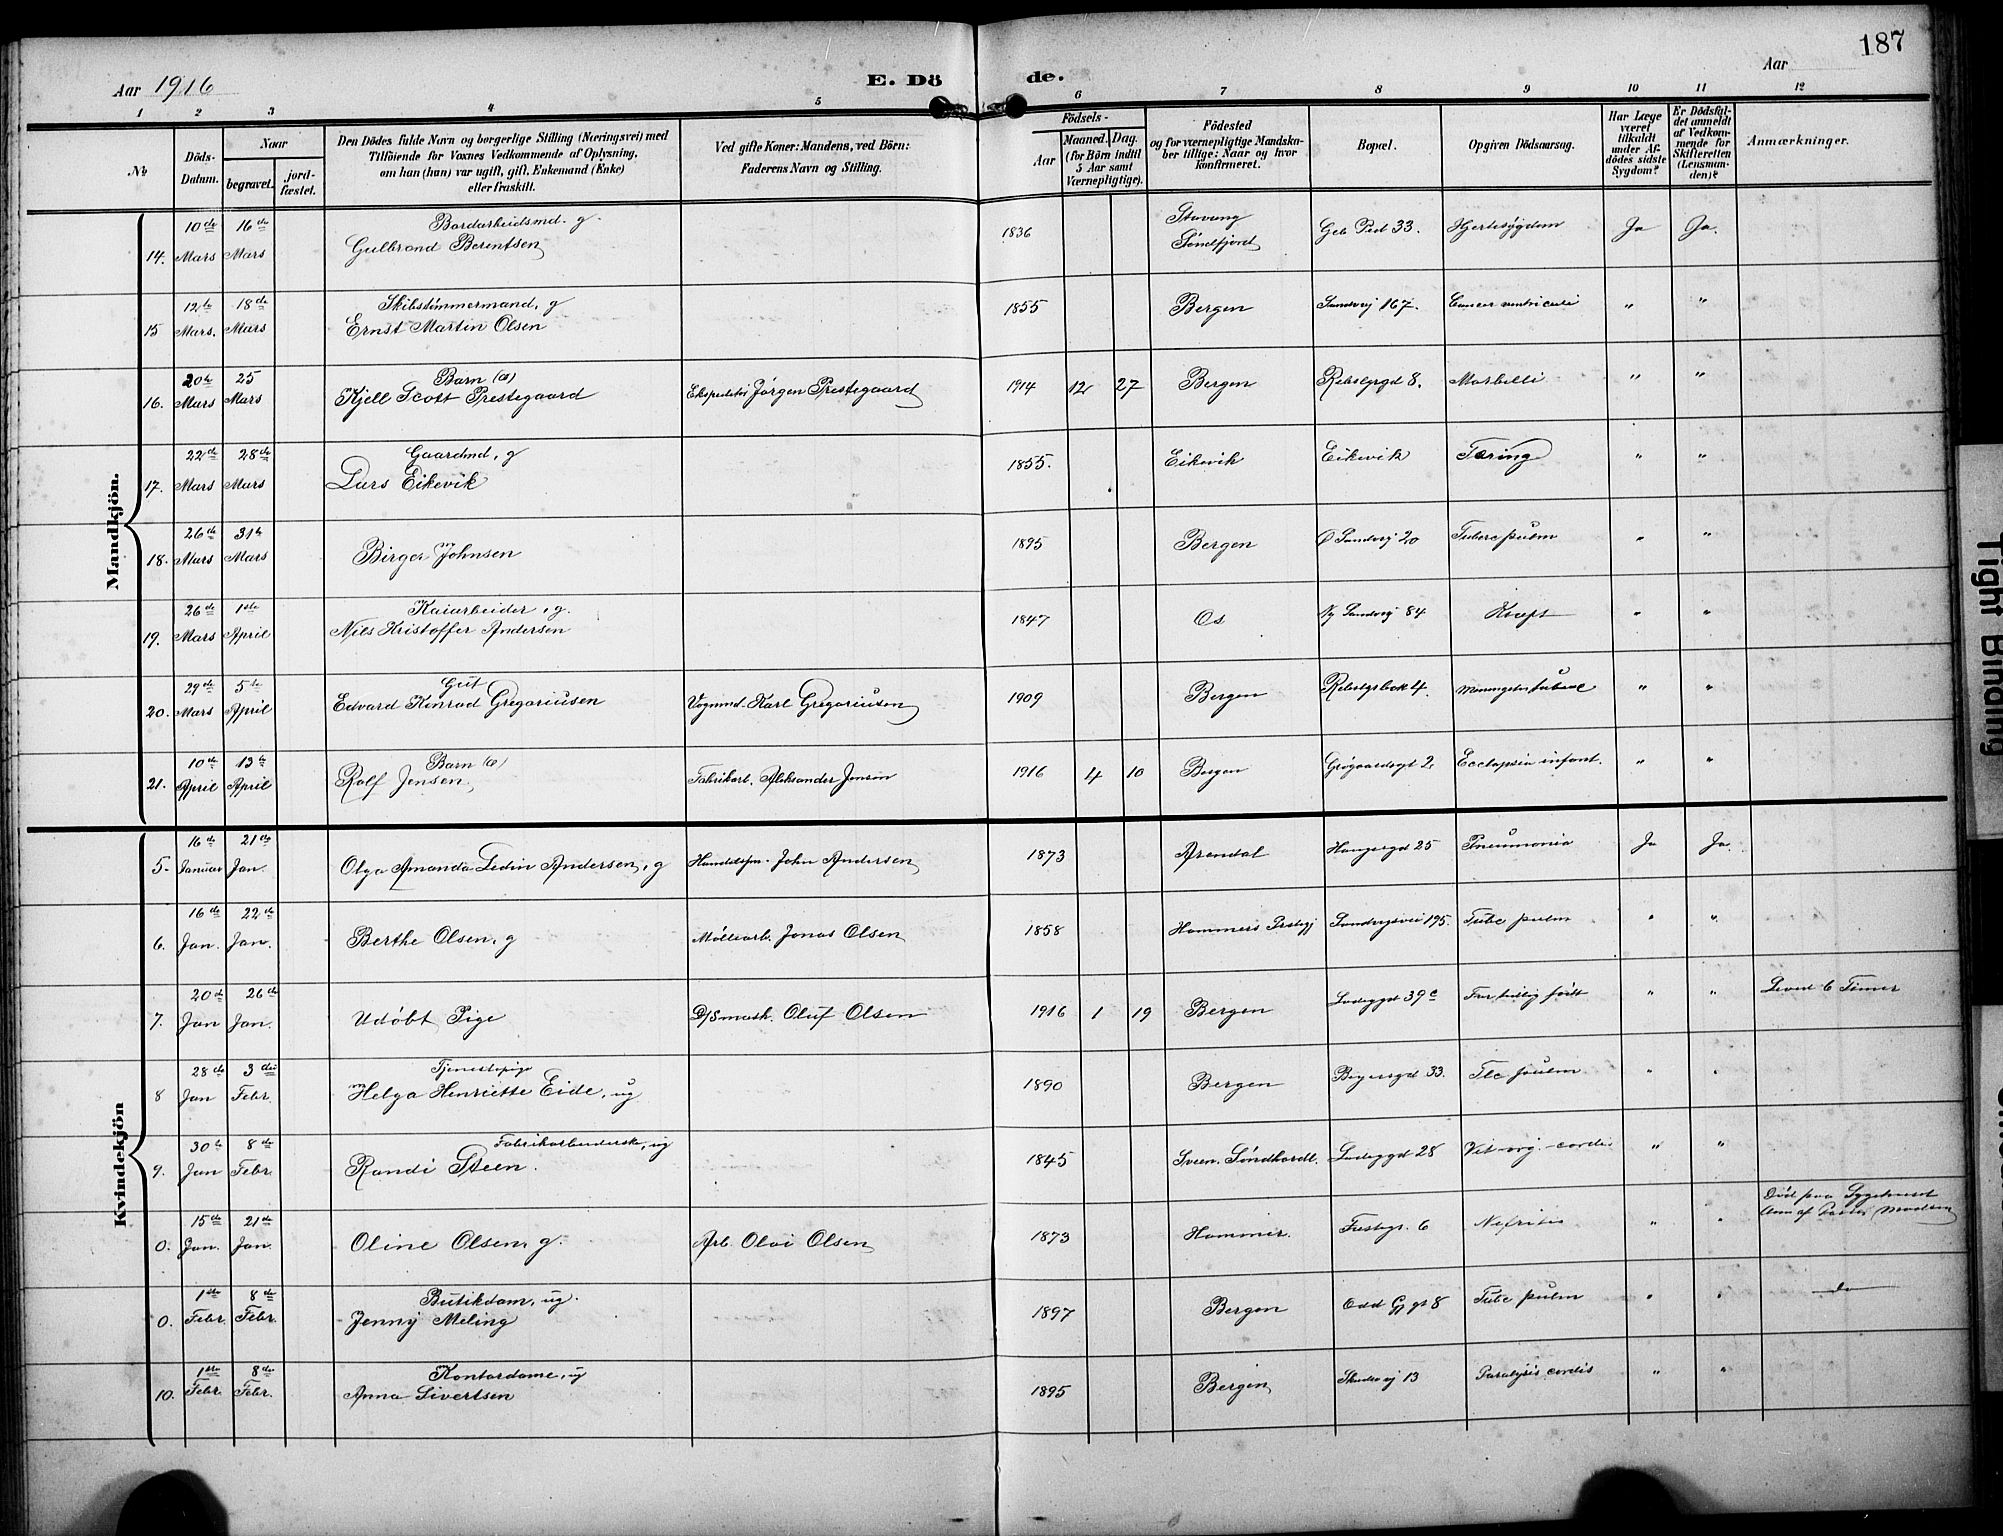 187
Aar 1916
E. Dö de.
Aar
1 2 3 4 5 6 7 8 9 10 11 12
No
Döds-Datum.
Naar
begravet.
jordfæstet.
Den Dödes fulde Navn og borgerlige Stilling (Næringsvei) med
Tilföiende for Voxnes Vedkommende af Oplysning,
om han (hun) var ugift, gift, Enkemand (Enke)
eller fraskilt.
Ved gifte Koner: Mandens, ved Börn:
Faderens Navn og Stilling.
Födsels-
Aar
Maaned. Dag.
(for Börn indtil
5 Aar samt
Værnepligtige).
Födested
og for værnepligtige Mandskaber
tillige: Naar og hvor
konfirmeret.
Bopæl.
Opgiven Dödsaarsag.
Har Læge
været
tilkaldt
under Afdödes sidste
Sygdom?
Er Dödsfaldet anmeldt
af Vedkommende for
Skifteretten
(Lensmanden)?
Anmærkninger.
Mandkjön.
14. 10de Mars 16de Mars Bordarbeidsmd. g. Gulbrand Berentsen 1836 Stavang Söndfjord 33. Hjertesygdom Ja Ja.
15 12te Mars. 18de Mars Skibstömmermand, g Ernst Martin Olsen 1855 Bergen Sandvej 167. Cancer ventriculi " "
16. 20de Mars 25 Mars Barn (æ) Kjell Scott Prestegaard Ekspeditör Jørgen Prestegaard 1914 12 27 Bergen 8. Morbilli " "
17. 22de Mars 28de Mars Gaardmd, g Lars Eikevik 1855. Eikevik Eikevik Tæring " "
18. 26de Mars 31te Mars Birger Johnsen 1895 Bergen Ø Sandvej 20 Tuberc pulm " "
19. 26de Mars 1ste April Kaiarbeider, g. Nils Kristoffer Andersen 1847 Os Ny Sandvej 84 Kræft " "
20. 29de Mars 5te April Gut Edvard Konrad Gregoriusen Vognmd. Karl Gregoriusen 1909 Bergen 4. " "
21. 10de April 13de April Barn (æ) Rolf Jensen Fabrikarb. Aleksander Jensen 1916 4 10 Bergen Grøgaardsgt 2. infant. " "
Kvindekjön
5- 16de Januar 21de Jan. Olga Amanda Ledin Andersen, g Handelsfm. John Andersen 1873 Arendal Haugesgd 25 Pneumonia Ja Ja.
6. 16de Jan. 22de Jan. Berthe Olsen, g Möllearb. Jonas Olsen 1858 Hammers Prstgj Sandvigsvei 195. Tubc pulm " "
7. 20de Jan 26de Jan. Udöbt Pige D/Smask. Oluf Olsen 1916 1 19 Bergen Ladeggd 39c For tidlig födt " " Leved 6 Timer
8 28de Jan 3die Febr. Tjenestepige Helga Henriette Eide, ug 1890 Bergen 33. Tbc pulm " "
9. 30te Jan 8de Febr. Fabrikarbeiderske, ug Randi Steen. 1845 Sveen. Söndhordl. Ladeggd 28 Vit. org. cordis " "
0. 15de Jan. 21de Jan. Oline Olsen, g. Arb. Olai Olsen 1873 Hammer. 6 Nefritis " " Död paa Sygehuset Anm af Pastor Madsen
0. 1ste Febr. 8de Febr. Butikdam, ug. Jenny Meling 1897 Bergen Odd Gj gt 8 Tubc pulm " " do
10. 1ste Febr. 8de Febr. Kontordame, ug Anna Sivertsen 1895 Bergen 13 Paralysis cordis " "
Tight Binding